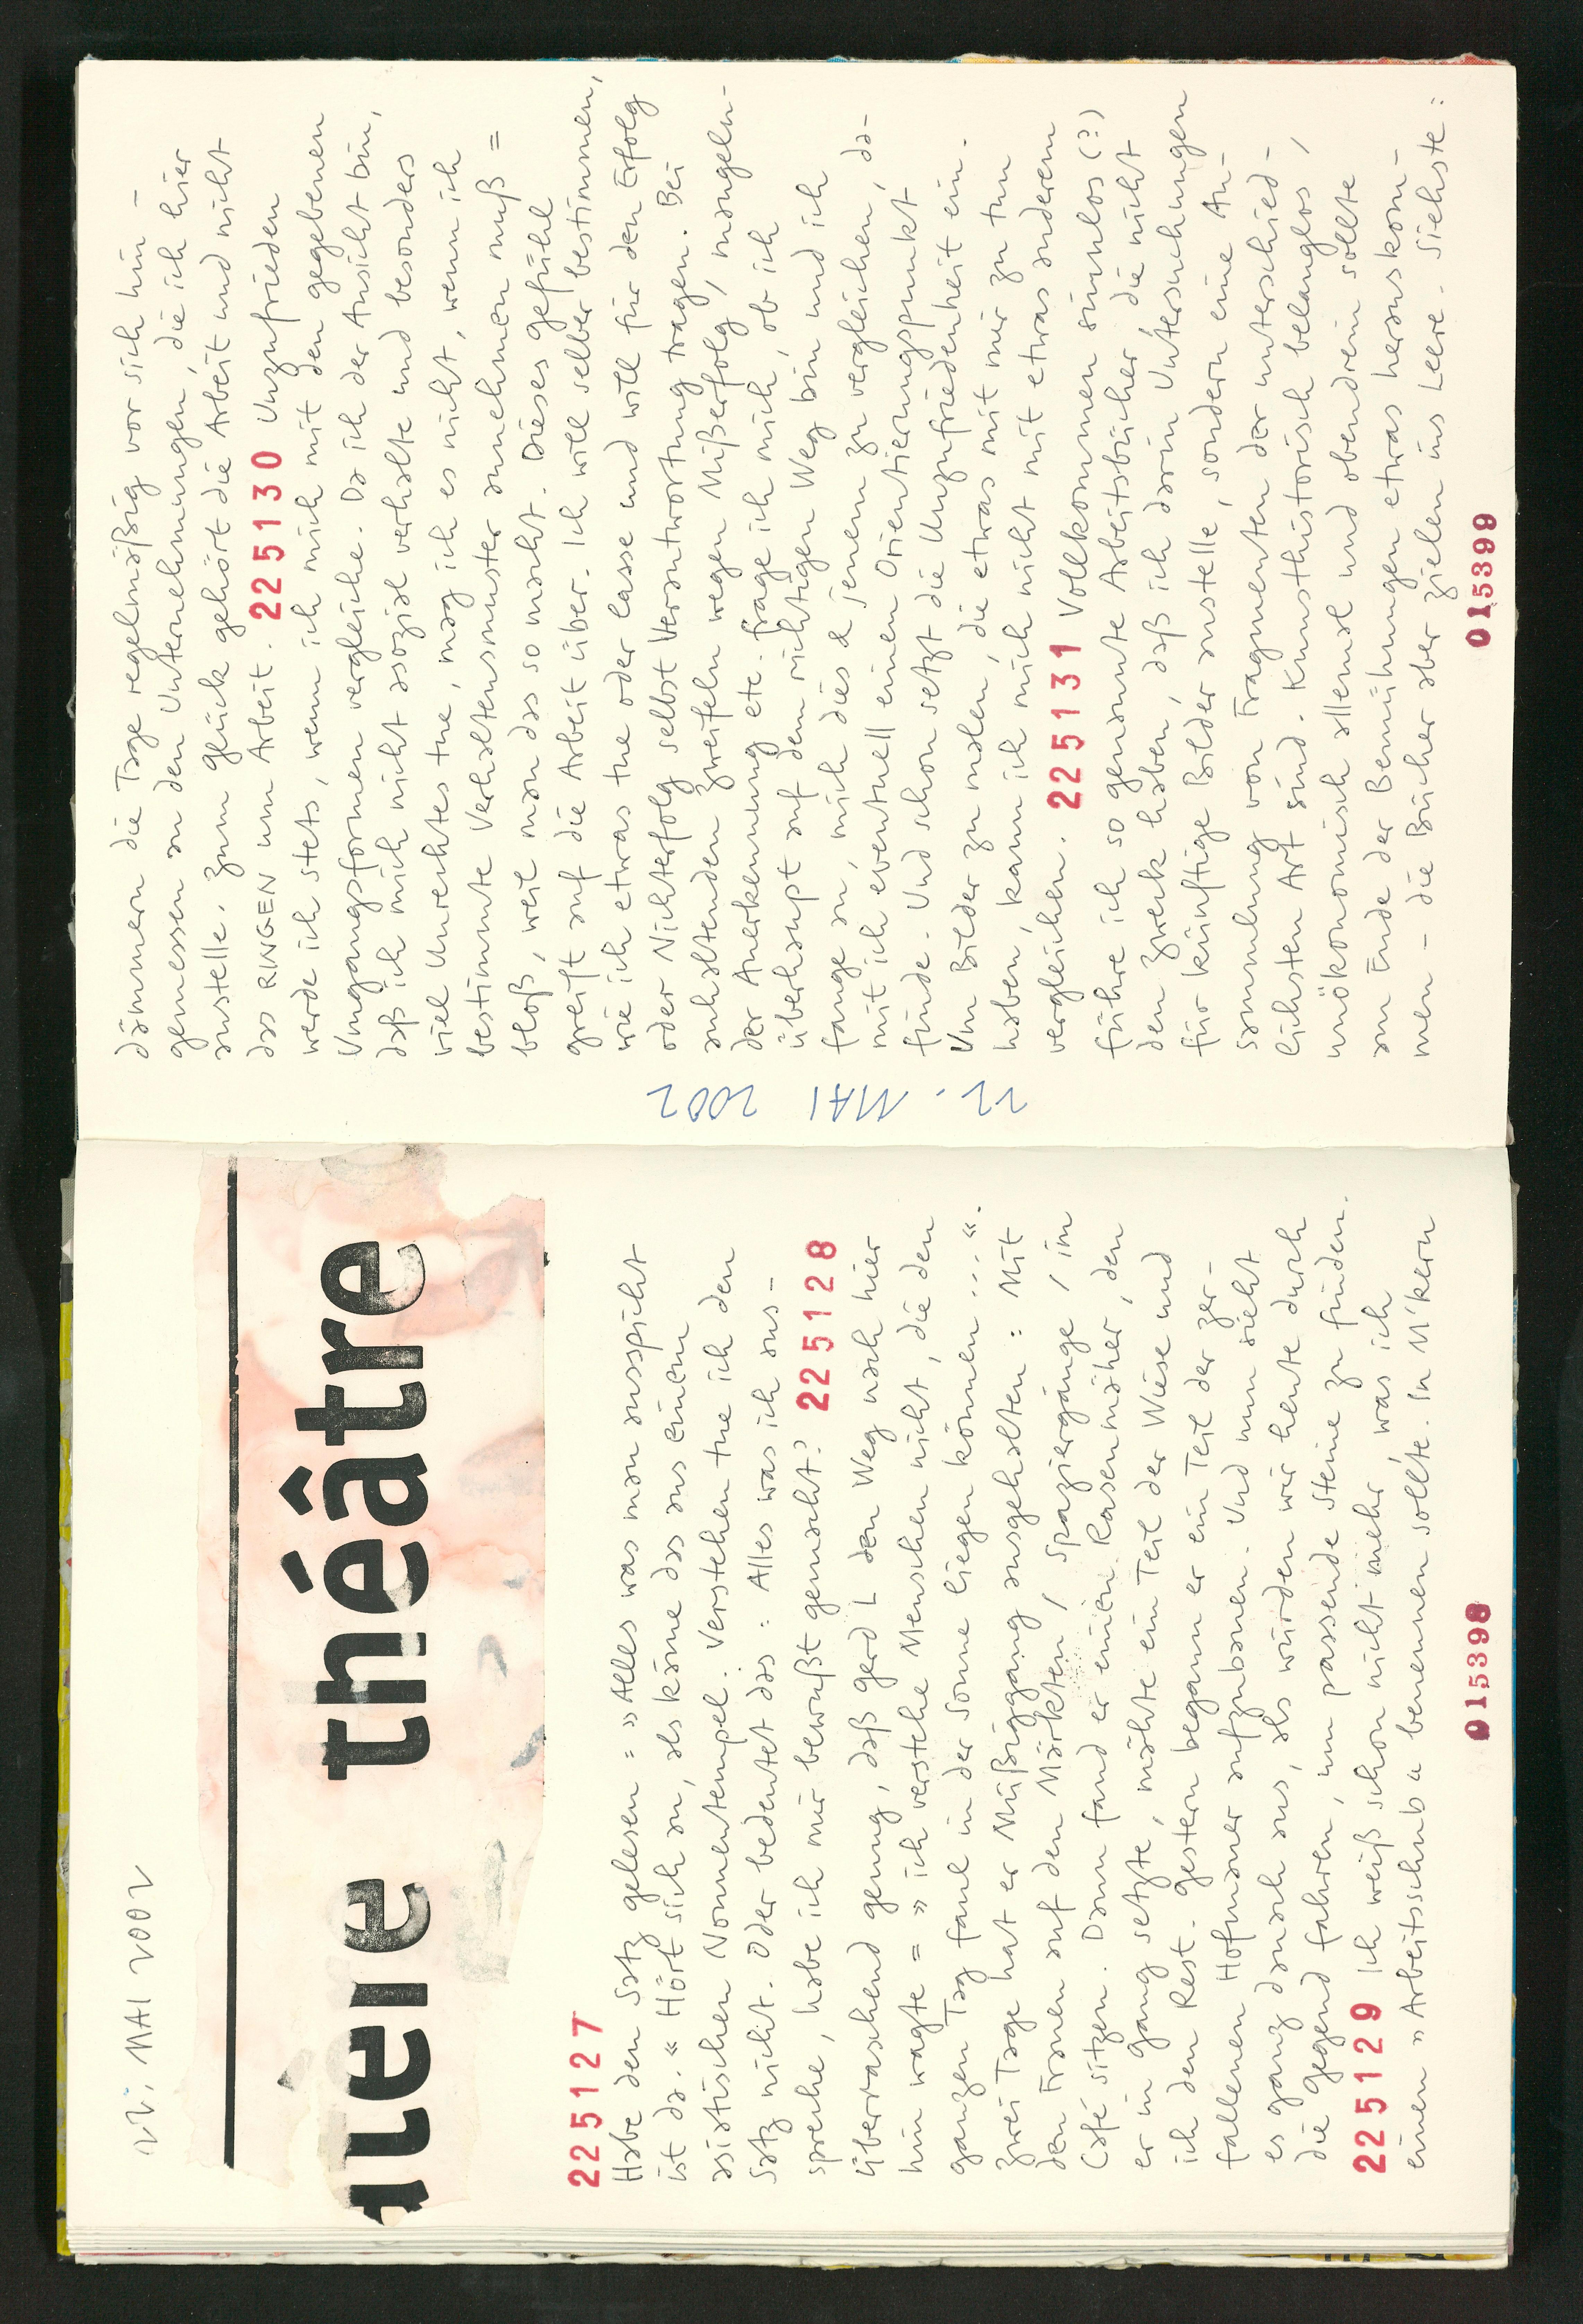 22. MAI 2002
théâtre
225127
Habe den Satz gelesen = »Alles was man ausspricht
ist da.« Hört sich an, als käme das aus einem
asiatischen Nonnentempel. Verstehen tue ich den
Satz nicht. Oder bedeutet das: Alles was ich aus-
spreche, habe ich mir bewußt gemacht? 225128
Überraschend genug, daß Gerd L den Weg nach hier
hin wagte = »ich verstehe Menschen nicht, die den
ganzen Tag faul in der Sonne liegen können ...«.
Zwei Tage hat er Müßiggang ausgehalten: Mit
den Frauen auf den Märkten, Spaziergänge, im
Café sitzen. Dann fand er einen Rasenmäher, den
er in Gang setzte, mähte ein Teil der Wiese und
ich den Rest. Gestern begann er ein Teil der zer-
fallenen Hofmauer aufzubauen. Und nun sieht
es ganz danach aus, als würden wir heute durch
die Gegend fahren, um passende Steine zu finden.
225129 Ich weiß schon nicht mehr, was ich
einen »Arbeitsschub« benennen sollte. In M'kern
015398
dämmern die Tage regelmäßig vor sich hin -
gemessen an den Unternehmungen, die ich hier
anstelle. Zum Glück gehört die Arbeit und nicht
das RINGEN um Arbeit. 225130 Unzufrieden
werde ich stets, wenn ich mich mit den gegebenen
Umgangsformen vergleiche. Da ich der Ansicht bin,
daß ich mich nicht asozial verhalte und besonders
viel Unrechtes tue, mag ich es nicht, wenn ich
bestimmte Verhaltensmuster annehmen muß =
bloß, weil man das so macht. Dieses Gefühl
greift auf die Arbeit über. Ich will selber bestimmen,
wie ich etwas tue oder lasse und will für den Erfolg
oder Nichterfolg selbst Verantwortung tragen. Bei
anhaltenden Zweifeln wegen Mißerfolg, mangeln-
der Anerkennung etc. frage ich mich, ob ich
überhaupt auf dem richtigen Weg bin und ich
fange an, mich dies & jenem zu vergleichen, da-
mit ich eventuell einen Orientierungspunkt
finde. Und schon setzt die Unzufriedenheit ein.
Um Bilder zu malen, die etwas mit mir zu tun
haben, kann ich mich nicht mit etwas anderem
vergleichen. 225131 Vollkommen sinnlos (?)
führe ich so genannte Arbeitsbücher, die nicht
den Zweck haben, daß ich darin Untersuchungen
für künftige Bilder anstelle, sondern eine An-
sammlung von Fragmenten der unterschied-
lichsten Art sind. Kunsthistorisch belanglos,
unökonomisch allemal und obendrein sollte
am Ende der Bemühungen etwas herauskom-
men - die Bücher aber zielen ins Leere. Siehste:
22. MAI 2002
015399